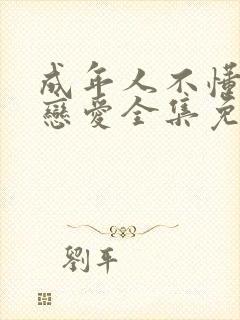 成年人不懂
戀愛全集免
劉平